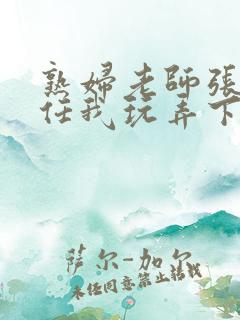 熟婦老師張
任我玩弄下
萨尔-加尔
未经同意禁止转载